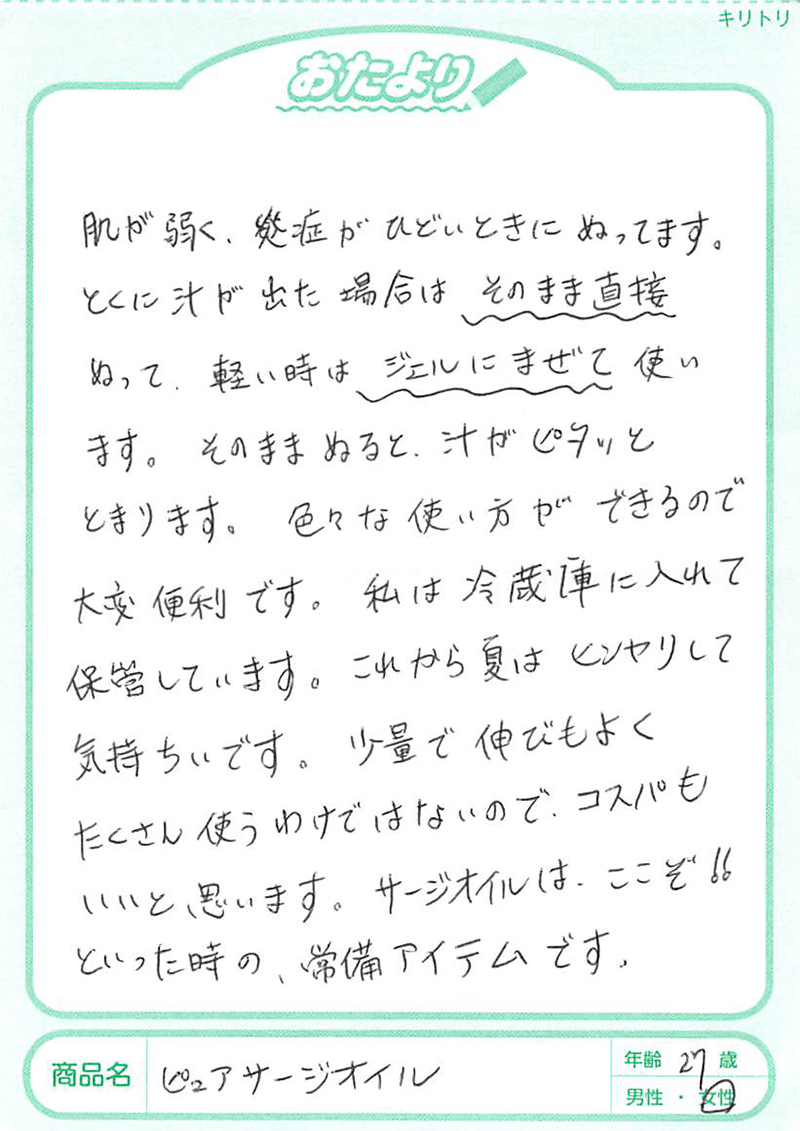 キリトリ
おたより
肌が弱く、炎症がひどいときにぬってます。
とくに汁が出た場合はそのまま直接
ぬって、軽い時はジェルにまぜて使い
ます。そのままぬると、汁がピタッと
とまります。色々な使い方ができるので
大変便利です。私は冷蔵庫に入れて
保管しています。これから夏はヒンヤリして
気持ちいです。少量で伸びもよく
たくさん使うわけではないので、コスパも
いいと思います。サージオイルは、ここぞ!!
といった時の、常備アイテムです。
商品名 ピュアサージオイル 年齢 27 歳
男性・女性